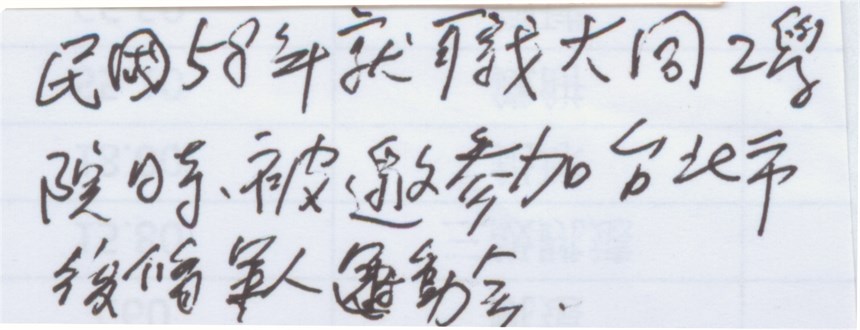 民國58年就職大同工學
院時、被邀參加台北市
後備軍人運動会.